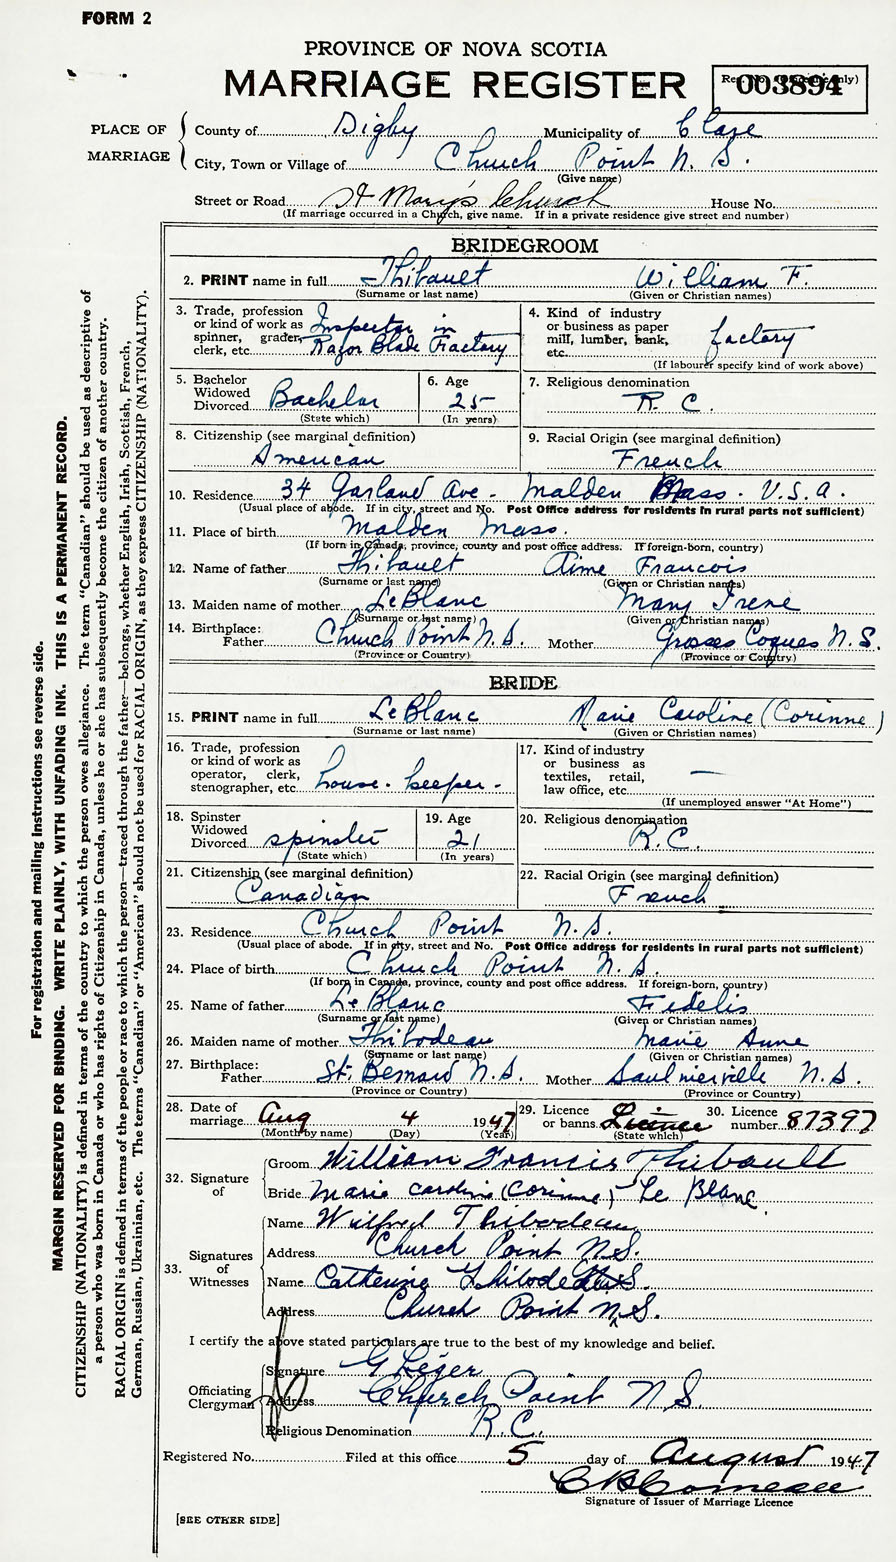 FORM 2
PROVINCE OF NOVA SCOTIA
MARRIAGE REGISTER
Reg. No. (Office use only)
003894
PLACE OF MARRIAGE
County of Digby Municipality of Clare
City, Town or Village of Church Point N. S.
(Give name)
Street or Road St Mary's Church House No.
(If marriage occurred in a Church, give name. If in a private residence give street and number)
BRIDEGROOM
2. PRINT name in full Thibault William F.
(Surname or last name) (Given or Christian names)
3. Trade, profession or kind of work as spinner, grader, clerk, etc. Inspector in Razor Blade Factory
4. Kind of industry or business as paper mill, lumber, bank, etc. factory
(If labourer specify kind of work above)
5. Bachelor Widowed Divorced Bachelor
(State which)
6. Age 25
(In years)
7. Religious denomination
R. C.
8. Citizenship (see marginal definition)
American
9. Racial Origin (see marginal definition)
French
10. Residence 34 Garland Ave. Malden Mass. U.S.A.
(Usual place of abode. If in city, street and No. Post Office address for residents in rural parts not sufficient)
11. Place of birth Malden Mass.
(If born in Canada, province, county and post office address. If foreign-born, country)
12. Name of father Thibault Aime Francois
(Surname or last name) (Given or Christian names)
13. Maiden name of mother LeBlanc Mary Irene
(Surname or last name) (Given or Christian names)
14. Birthplace:
Father Church Point N.S. Mother Grosses Coques N.S.
(Province or Country) (Province or Country)
BRIDE
15. PRINT name in full LeBlanc Marie Caroline (Corinne)
(Surname or last name) (Given or Christian names)
16. Trade, profession or kind of work as operator, clerk, stenographer, etc. house-keeper-
17. Kind of industry or business as textiles, retail, law office, etc. —
(If unemployed answer "At Home")
18. Spinster Widowed Divorced spinster
(State which)
19. Age 21
(In years)
20. Religious denomination
R.C.
21. Citizenship (see marginal definition)
Canadian
22. Racial Origin (see marginal definition)
French
23. Residence Church Point N.S.
(Usual place of abode. If in city, street and No. Post Office address for residents in rural parts not sufficient)
24. Place of birth Church Point N.S.
(If born in Canada, province, county and post office address. If foreign-born, country)
25. Name of father LeBlanc Fidelis
(Surname or last name) (Given or Christian names)
26. Maiden name of mother Thibodeau Marie Anne
(Surname or last name) (Given or Christian names)
27. Birthplace:
Father St. Bernard N.S. Mother Saulnierville N.S.
(Province or Country) (Province or Country)
28. Date of marriage Aug 4 1947
(Month by name) (Day) (Year)
29. Licence or banns Licence
(State which)
30. Licence number 87397
32. Signature of
Groom William Francis Thibault
Bride Marie Caroline (Corinne) Le Blanc
33. Signatures of Witnesses
Name Wilfred Thibodeau
Address Church Point N.S.
Name Catherine Thibodeau
Address Church Point N.S.
I certify the above stated particulars are true to the best of my knowledge and belief.
Officiating Clergyman
Signature G Léger
Address Church Point N S.
Religious Denomination R.C.
Registered No. Filed at this office 5 day of August 1947
C B Comeau
Signature of Issuer of Marriage Licence
[SEE OTHER SIDE]
For registration and mailing instructions see reverse side.
MARGIN RESERVED FOR BINDING. WRITE PLAINLY, WITH UNFADING INK. THIS IS A PERMANENT RECORD.
CITIZENSHIP (NATIONALITY) is defined in terms of the country to which the person owes allegiance. The term "Canadian" should be used as descriptive of
a person who was born in Canada or who has rights of Citizenship in Canada, unless he or she has subsequently become the citizen of another country.
RACIAL ORIGIN is defined in terms of the people or race to which the person—traced through the father—belongs, whether English, Irish, Scottish, French,
German, Russian, Ukrainian, etc. The terms "Canadian" or "American" should not be used for RACIAL ORIGIN, as they express CITIZENSHIP (NATIONALITY).